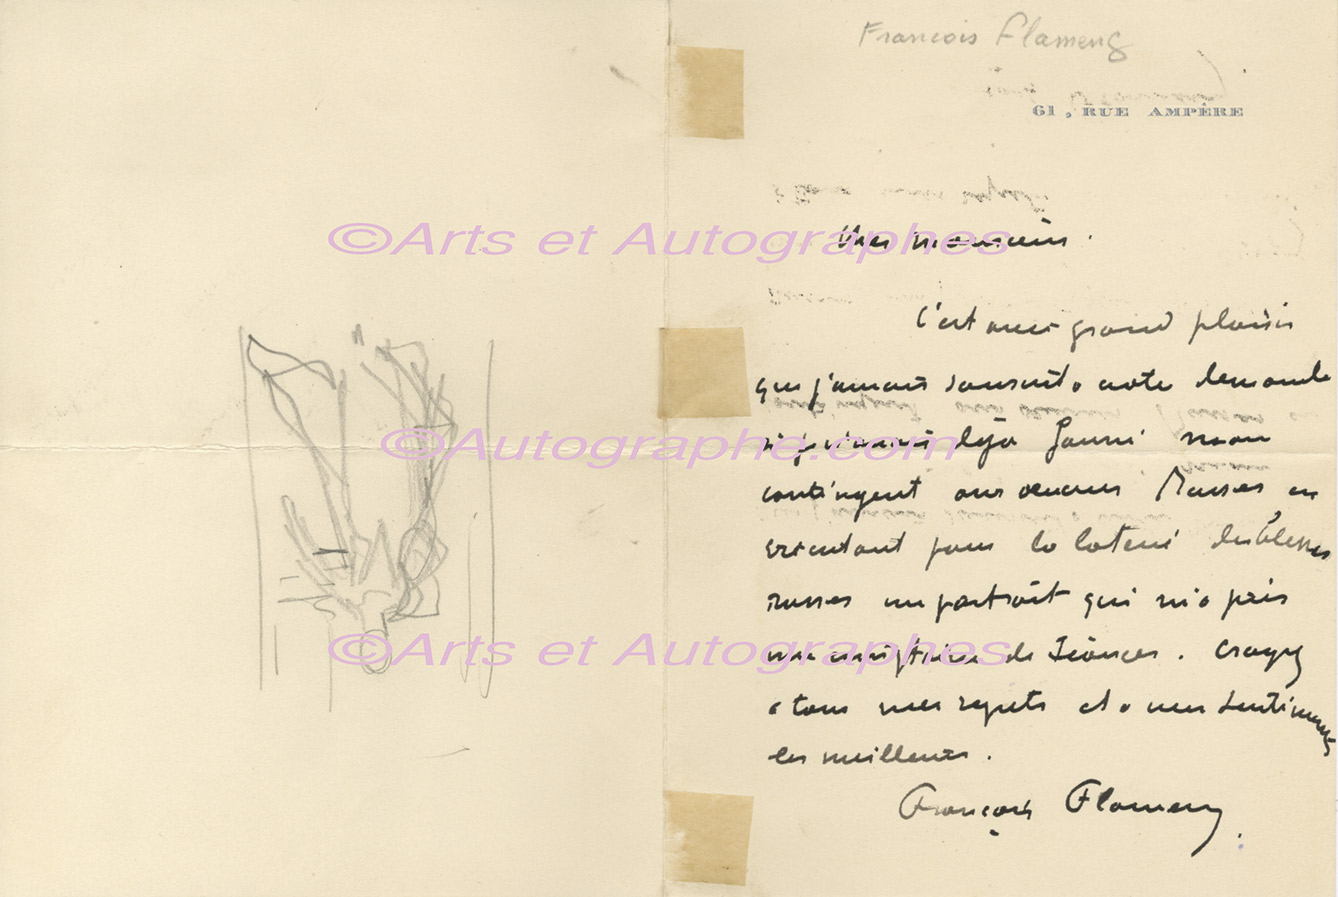 François Flameng
61, RUE AMPÈRE
©Arts et Autographes
monsieur.
C'est avec grand plaisir
que j'aurais souscrit à votre demande
si je n'avais déjà fourni mon
contingent aux œuvres Russes en
exécutant pour la loterie des blessés
russes un portrait qui m'a pris
une de séances. Croyez
à tous mes regrets et à mes sentiments
les meilleurs.
François Flameng.
©Autographe.com
©Arts et Autographes